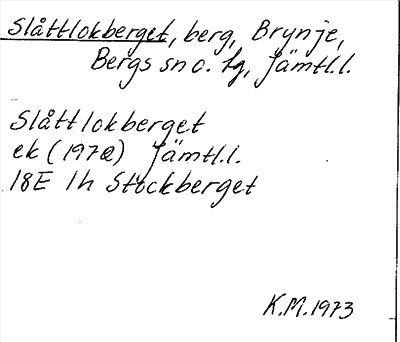 Slåttlokberget, berg, Brynje,
Bergs sn o. tg, Jämtl.l.
Slåttlokberget
ek (1972) Jämtl.l.
18E 1h Stockberget
K.M. 1973